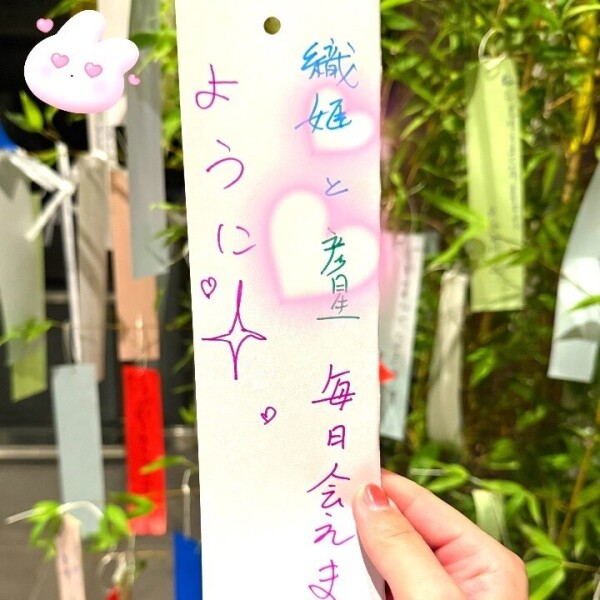 織姫と彦星 毎日会えま
ように